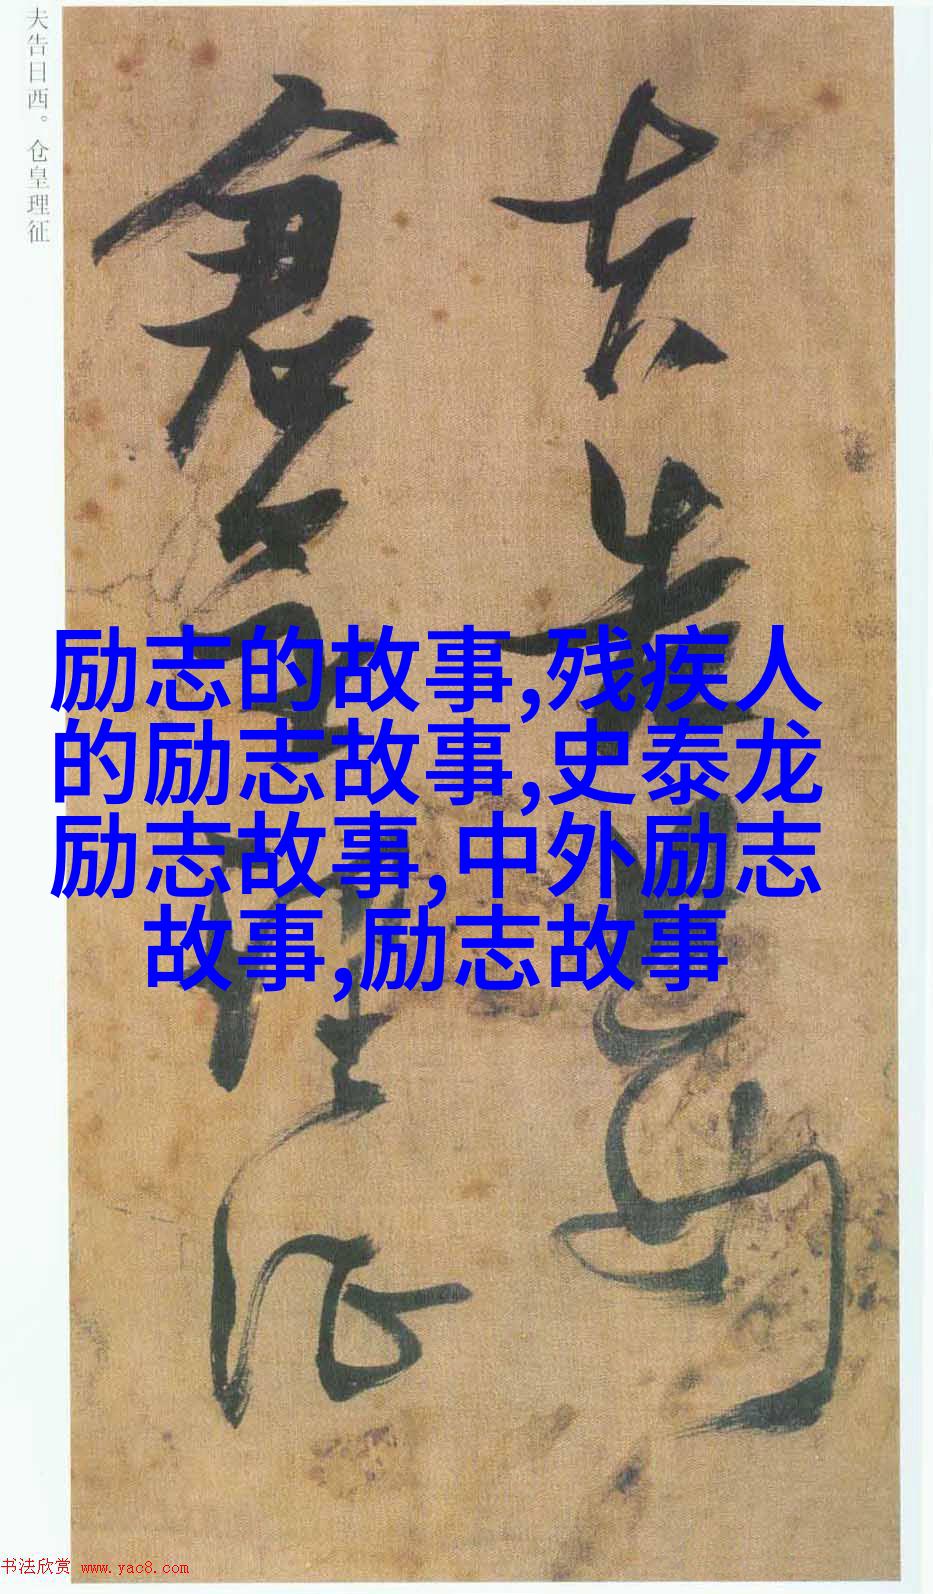 夫告日西。仓皇理征
夫告日西
倉皇理征
励志的故事,残疾人
的励志故事,史泰龙
励志故事,中外励志
故事,励志故事
书法欣赏 www.yac8.com